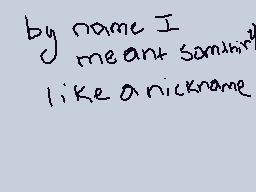 by name I
meant somthing
like a nickname